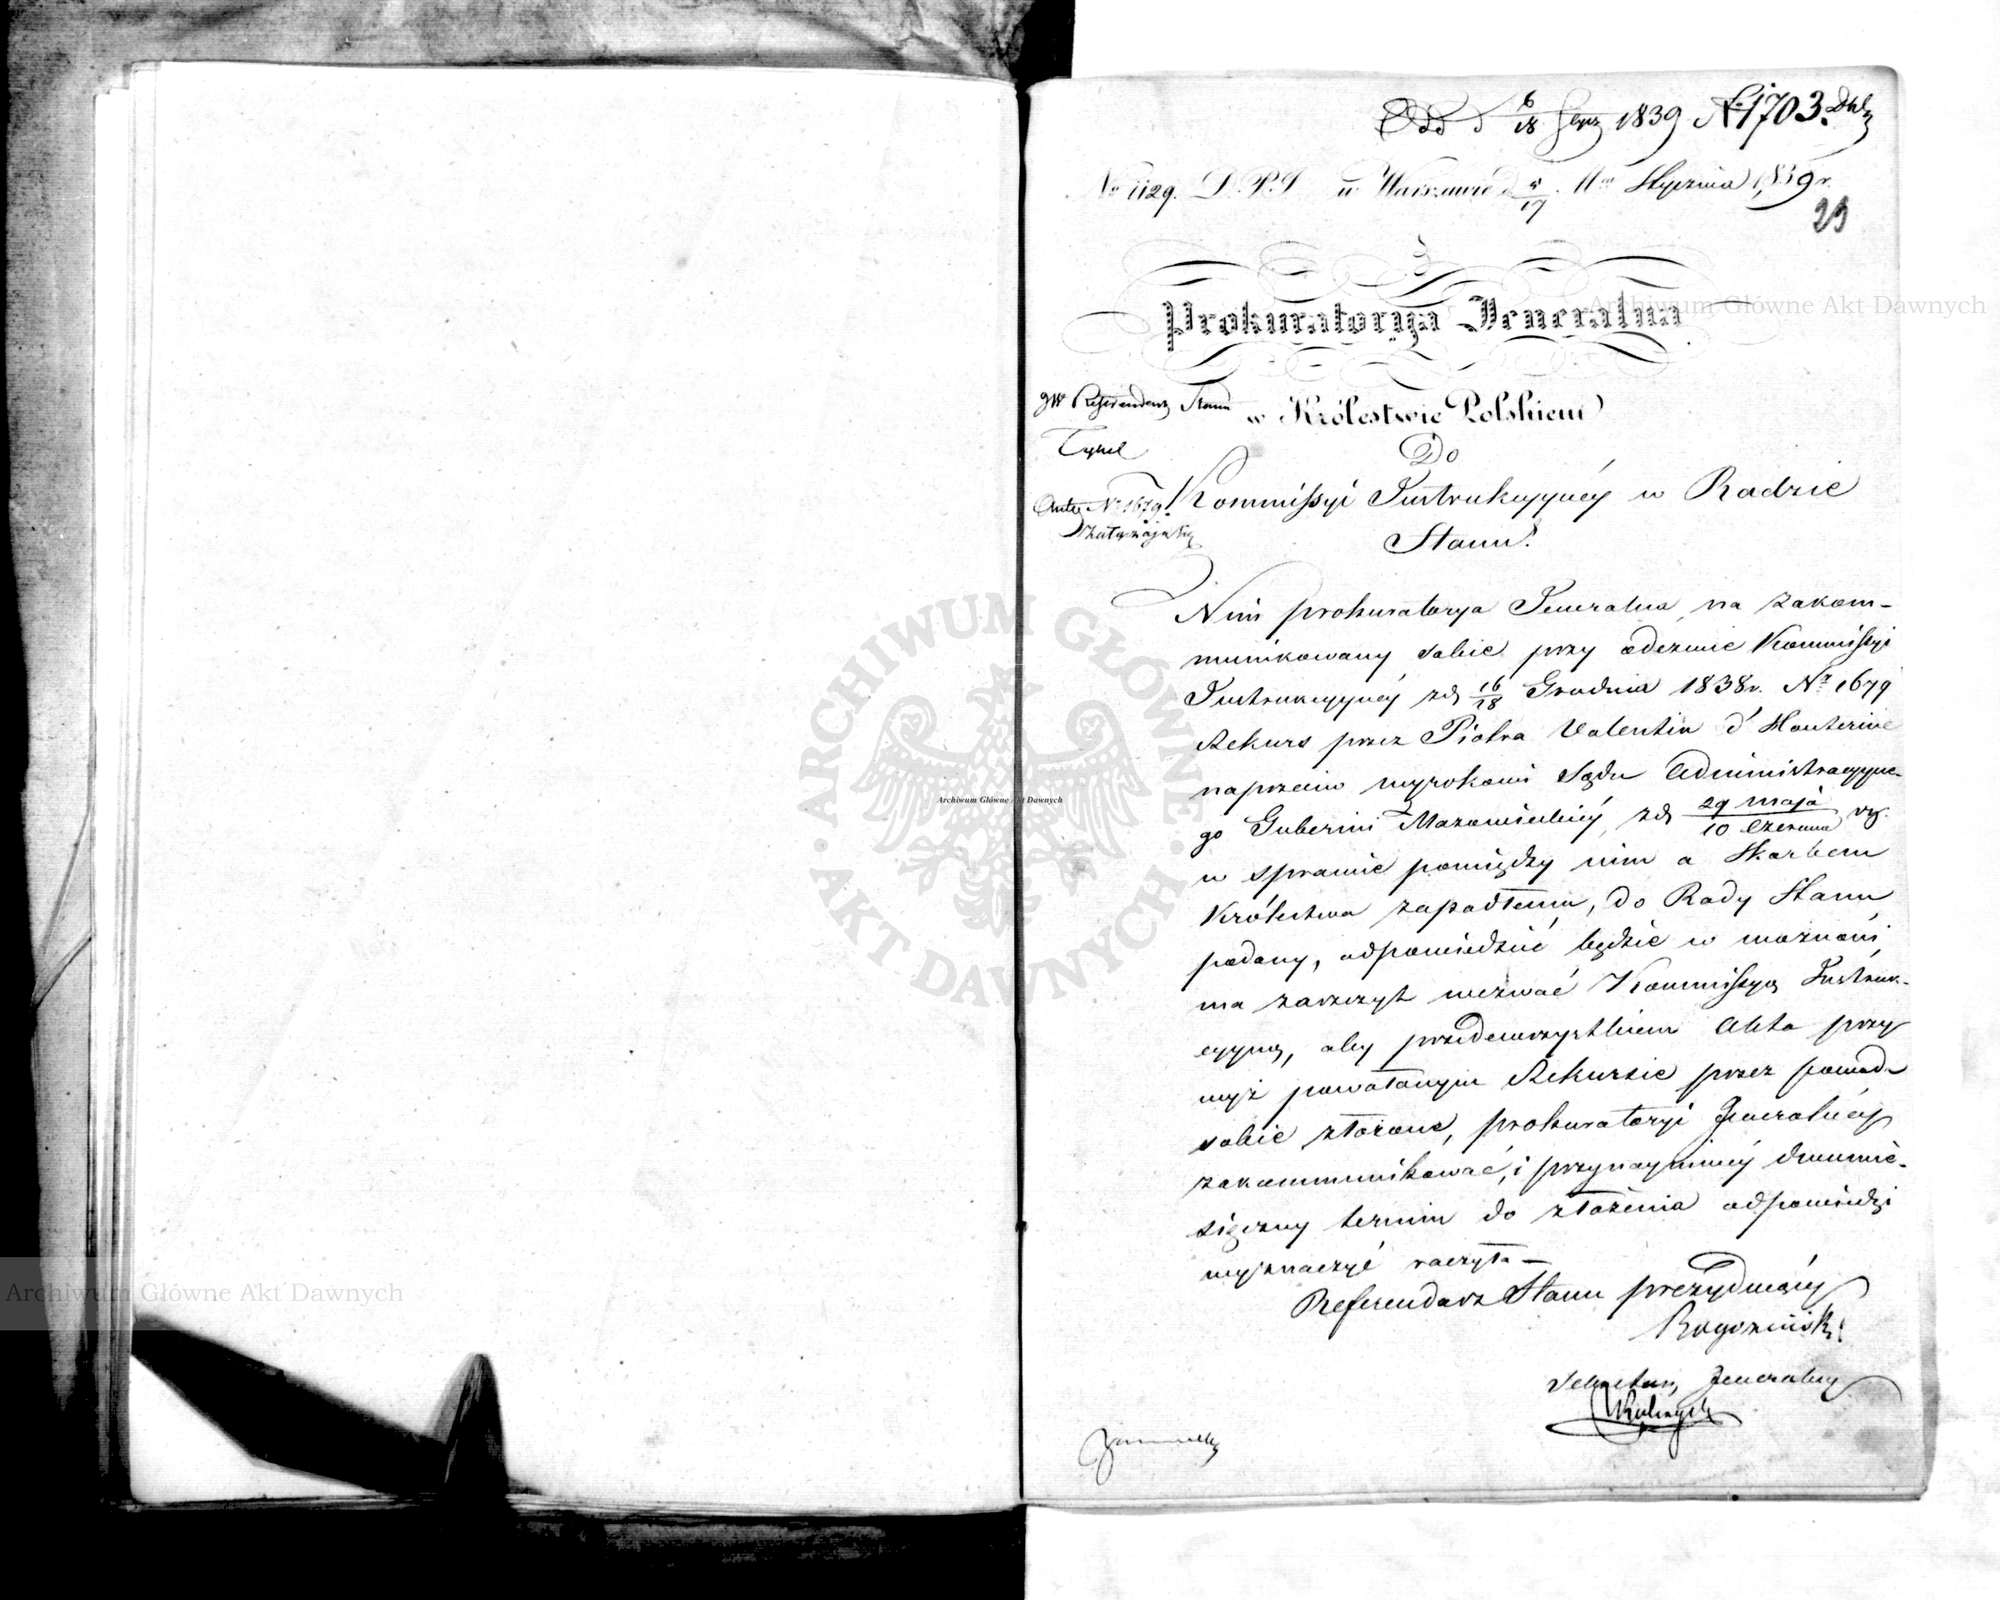 Odd d 6/18 Stycz 1839 N. 1703.
No 1129. D.P.J w Warszawie d 5/17. Mca Stycznia 1839 r.
29
Prokuratorya Jeneralna
w Królestwie Polskiem
JW Referendarz Stanu
Tykel
Do
Kommissyi Instrukcyyney w Radzie
Anter N. 1679.
załączają się
Stanu.
Nim prokuratorya Jeneralna, na zakom-
munikowany sobie przy odezwie Kommissyi
Instrukcyyney zd 16/28 Grudnia 1838r. Nr 1679
Rekurs przez Piotra Valentin d'Hauterive
naprzeciw wyrokowi Sądu Administracyyne-
go Gubernii Mazowieckiey, zd 29 maja/10 Czerwca rz.
w sprawie pomiędzy nim a Skarbem
Królestwa zapadłemu, do Rady Stanu
podany, odpowiedzieć będzie w możności,
ma zaszczyt wezwać Kommissyą Instruk-
cyyną, aby przedewszystkiem Akta przy
wyż powołanym Rekursie przez powod-
sobie złożone, prokuratoryi Jeneralney
zakommunikować, i przynaymniey dwumie-
sięczny termin do złożenia odpowiedzi
wyznaczyć raczyła —
Referendarz Stanu prezyduiący
Sekretarz Jeneralny
Archiwum Główne Akt Dawnych
Archiwum Główne Akt Dawnych
Archiwum Główne Akt Dawnych
ARCHIWUM GŁÓWNE · AKT DAWNYCH ·